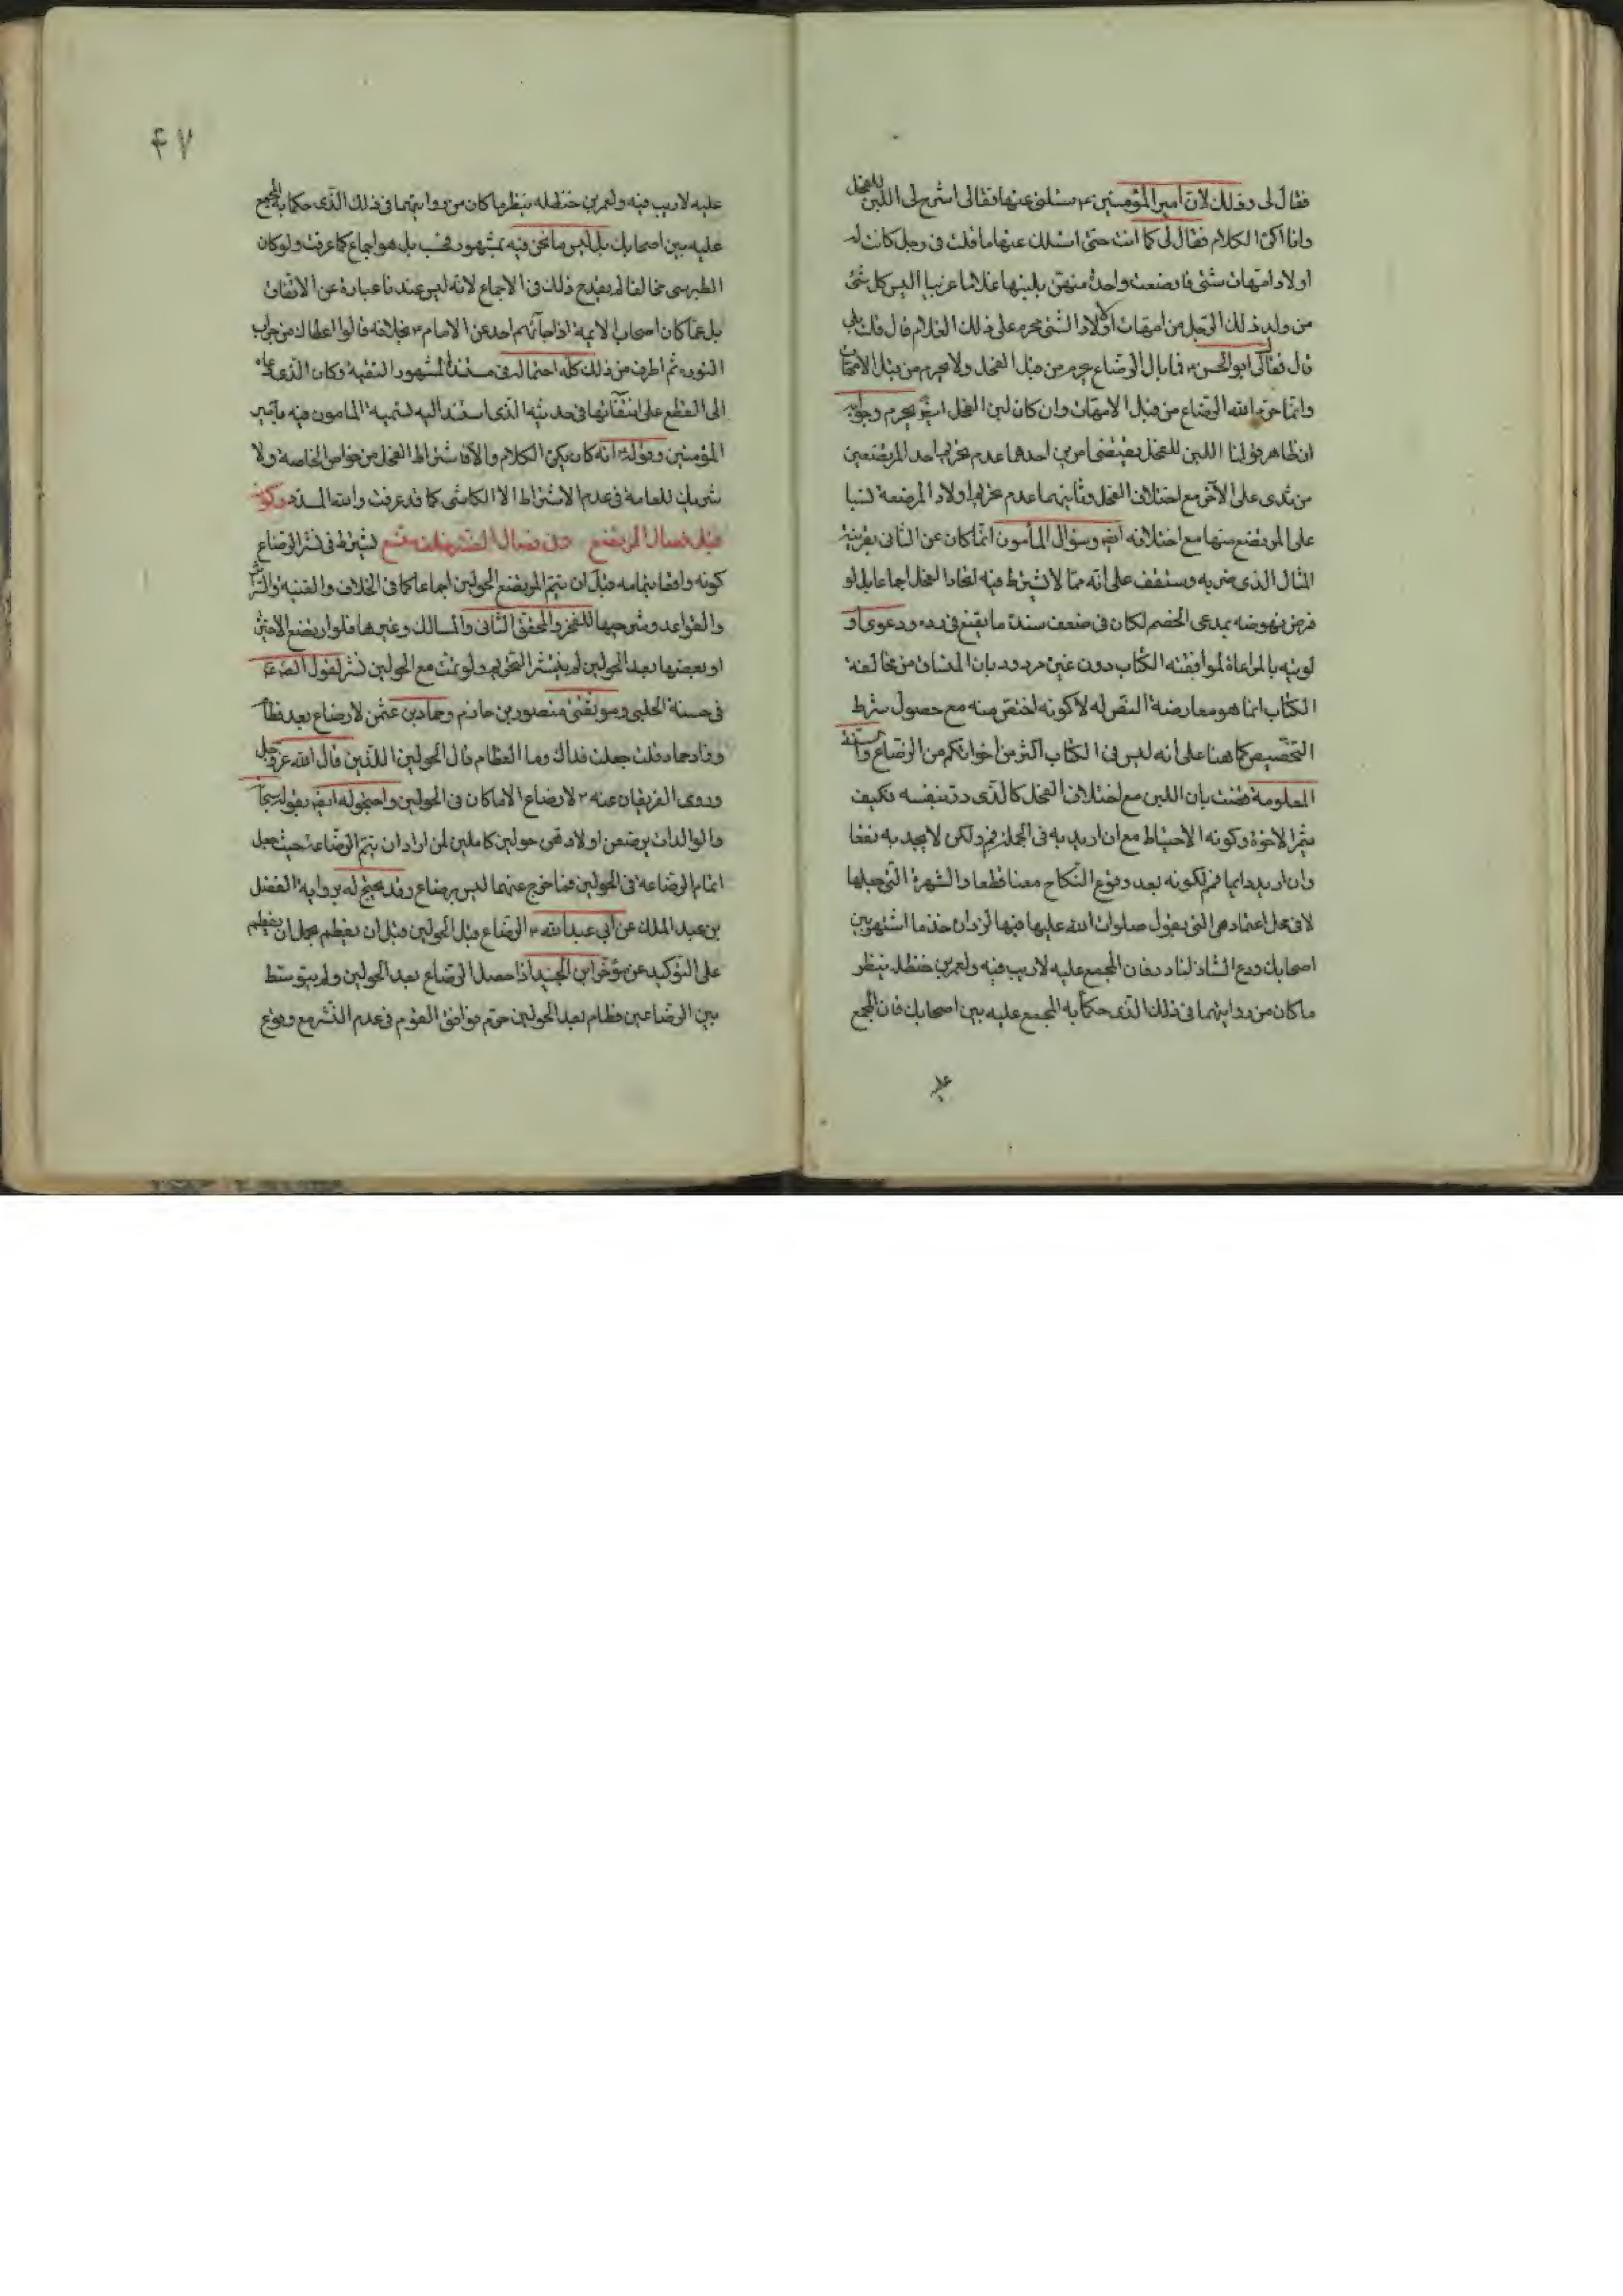 فقال لی وذلك لان أمیر المؤمنین ۴ سئلنی عنها فقال لی اشرح لی اللبن للفحل
وانا اکره الکلام فقال لی کما انت حتی اسئلك عنها ما قلت فی رجل کانت له
اولاد امهات شتی فارضعت واحدة منهن بلبنها غلاما غریبا الیس کل شئ
من ولد ذلك الرجل من امهات اولاد الشتی محرم علی ذلك الغلام قال قلت بلی
قال فقال لی ابو الحسن ۴ فما بال الرضاع یحرم من قبل الفحل ولا یحرم من قبل الامهات
وانما حرم الله الرضاع من قبل الامهات وان کان لبن الفحل ایضا یحرم وجوابه
ان ظاهر قولنا اللبن للفحل یقتضی امرین احدهما عدم تحریم احد المرتضعین
من ثدی علی الآخر مع اختلاف الفحل وثانیهما عدم تحریم اولاد المرضعة نسبا
علی المرتضع منها مع اختلافه ایضا وسؤال المأمون انما کان عن الثانی بقرینة
المثال الذی ضربه وستقف علی انه مما لا یشترط فیه اتحاد الفحل اجماعا بل لو
فرض نهوضه بمدعی الخصم لکان فی ضعف سنده ما یقنع فی رده ودعوی او
لویته بالمراعاة لموافقته الکتاب دون غیره مردود بان المنساق من مخالفة
الکتاب انما هو معارضة النص له لا کونه اخص منه مع حصول شرط
التخصیص کما هنا علی انه لیس فی الکتاب اکثر من اخواتکم من الرضاع والسنة
المعلومة قضت بان اللبن مع اختلاف الفحل کالذی در بنفسه فکیف
یثمر الاخوة وکونه الاحتیاط مع ان ارید به فی الجملة فنعم ولکن لا یجدیه نفعا
وان ارید دایما فمم لکونه بعد وقوع النکاح معنا قطعا والشهرة التی جعلها
لا فی محل اعتماد هی التی یقول صلوات الله علیها فیها لزرارة خذ ما اشتهر بین
اصحابك ودع الشاذ النادر فان المجمع علیه لا ریب فیه ولعمر بن حنظلة ینظر
ما کان من روایتهما فی ذلك الذی حکما به المجمع علیه بین اصحابك فان المجمع
علیه
۴۷
علیه لا ریب فیه ولعمر بن حنظله ینظر ما کان من روایتهما فی ذلك الذی حکما به المجمع
علیه بین اصحابك بل لیس ما نحن فیه بمشهور فحسب بل هو اجماع کما عرفت ولو کان
الطبرسی مخالفا لم یقدح ذلك فی الاجماع لانه لیس عندنا عبارة عن الاتفاق
بل عما کان اصحاب الایمة اذا جآئهم احد عن الامام ۴ بخلافه قالوا اعطاك من جراب
النوره ثم اطرف من ذلك کله احتماله فی مستند المشهور التقیة وکان الذی دعاه
الی القطع علی انتفائها فی حدیثه الذی استند الیه تسمیة المامون فیه بامیر
المؤمنین وقوله انه کان یکره الکلام والا فاشتراط الفحل من خواص الخاصة ولا
شریك للعامة فی عدم الاشتراط الا الکاشی کما قد عرفت والله المسدد وکونه
قبل فصال المرتضع لیشترط فی نشر الرضاع
کونه واقعا بتمامه قبل ان یتم المرتضع الحولین اجماعا کما فی الخلاف والغنیة والشرایع
والقواعد وشرحیها للفخر والمحقق الثانی والمسالك وغیرها فلو ارتضع الاخیرة
او بعضها بعد الحولین لم ینشر التحریم ولو تمت مع الحولین نشر لقول الصادق
فی حسنة الحلبی وموثقتی منصور بن حازم وحماد بن عثمن لا رضاع بعد فطام
وزاد حماد قلت جعلت فداك وما الفطام قال الحولین اللذین قال الله عز وجل
وروی الفریقان عنه ۴ لا رضاع الا ما کان فی الحولین واحتج له ایضا بقوله سبحانه
والوالدات یرضعن اولادهن حولین کاملین لمن اراد ان یتم الرضاعة حیث جعل
اتمام الرضاعة فی الحولین فما خرج عنهما لیس برضاع وقد یحتج له بروایة الفضل
بن عبد الملك عن أبی عبد الله ۴ الرضاع قبل الحولین قبل ان یفطم بجعل ان یفطم
علی التوکید عن مؤخر ابن الجنید اذا حصل الرضاع بعد الحولین ولم یتوسط
بین الرضاعین فطام بعد الحولین حرم موافق القوم فی عدم النشر مع وقوع